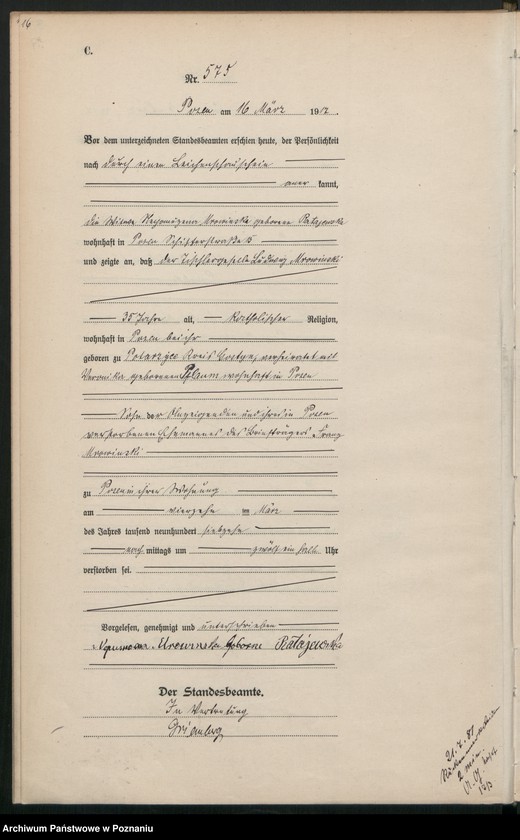 16
C.
Nr. 575
Posen am 16 März 1912.
Vor dem unterzeichneten Standesbeamten erschien heute, der Persönlichkeit
nach durch einen Leichenschauschein
aner kannt,
die Witwe Mrowinska geborene Ratajewska
wohnhaft in Posen Schifferstraße 5
und zeigte an, daß der Tischlergeselle Ludwig Mrowinski
35 Jahre alt, katholischer Religion,
wohnhaft in Posen bei ihr
geboren zu Potarzyce Kreis verheiratet mit
Veronika geborenen Pflaum wohnhaft in Posen
Sohn der Anzeigenden und ihres in Posen
verstorbenen Ehemannes des Briefträgers Franz
Mrowinski
zu Posen in ihrer Wohnung
am vierzehn ten März
des Jahres tausend neunhundert siebzehn
nach mittags um zwölf ein halb Uhr
verstorben sei.
Vorgelesen, genehmigt und unterschrieben
Mrowinska geborene Ratajewska
Der Standesbeamte.
In Vertretung